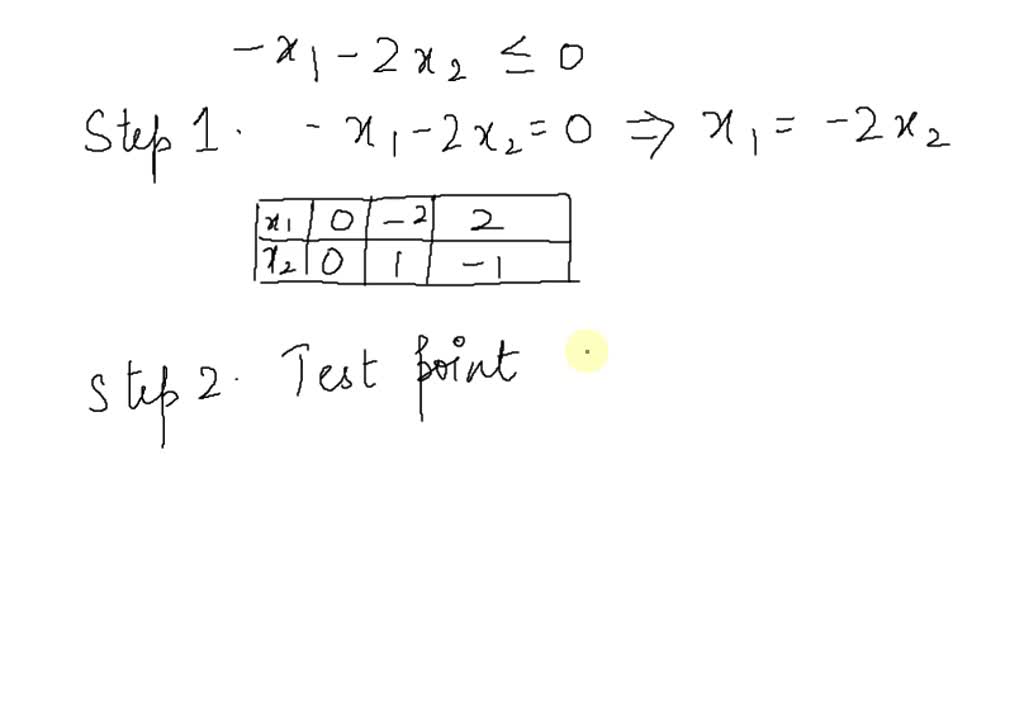 -x₁ - 2x₂ ≤ 0
Step 1. -x₁ - 2x₂ = 0 ⇒ x₁ = -2x₂
x₁ 0 -2 2
x₂ 0 1 -1
Step 2. Test point